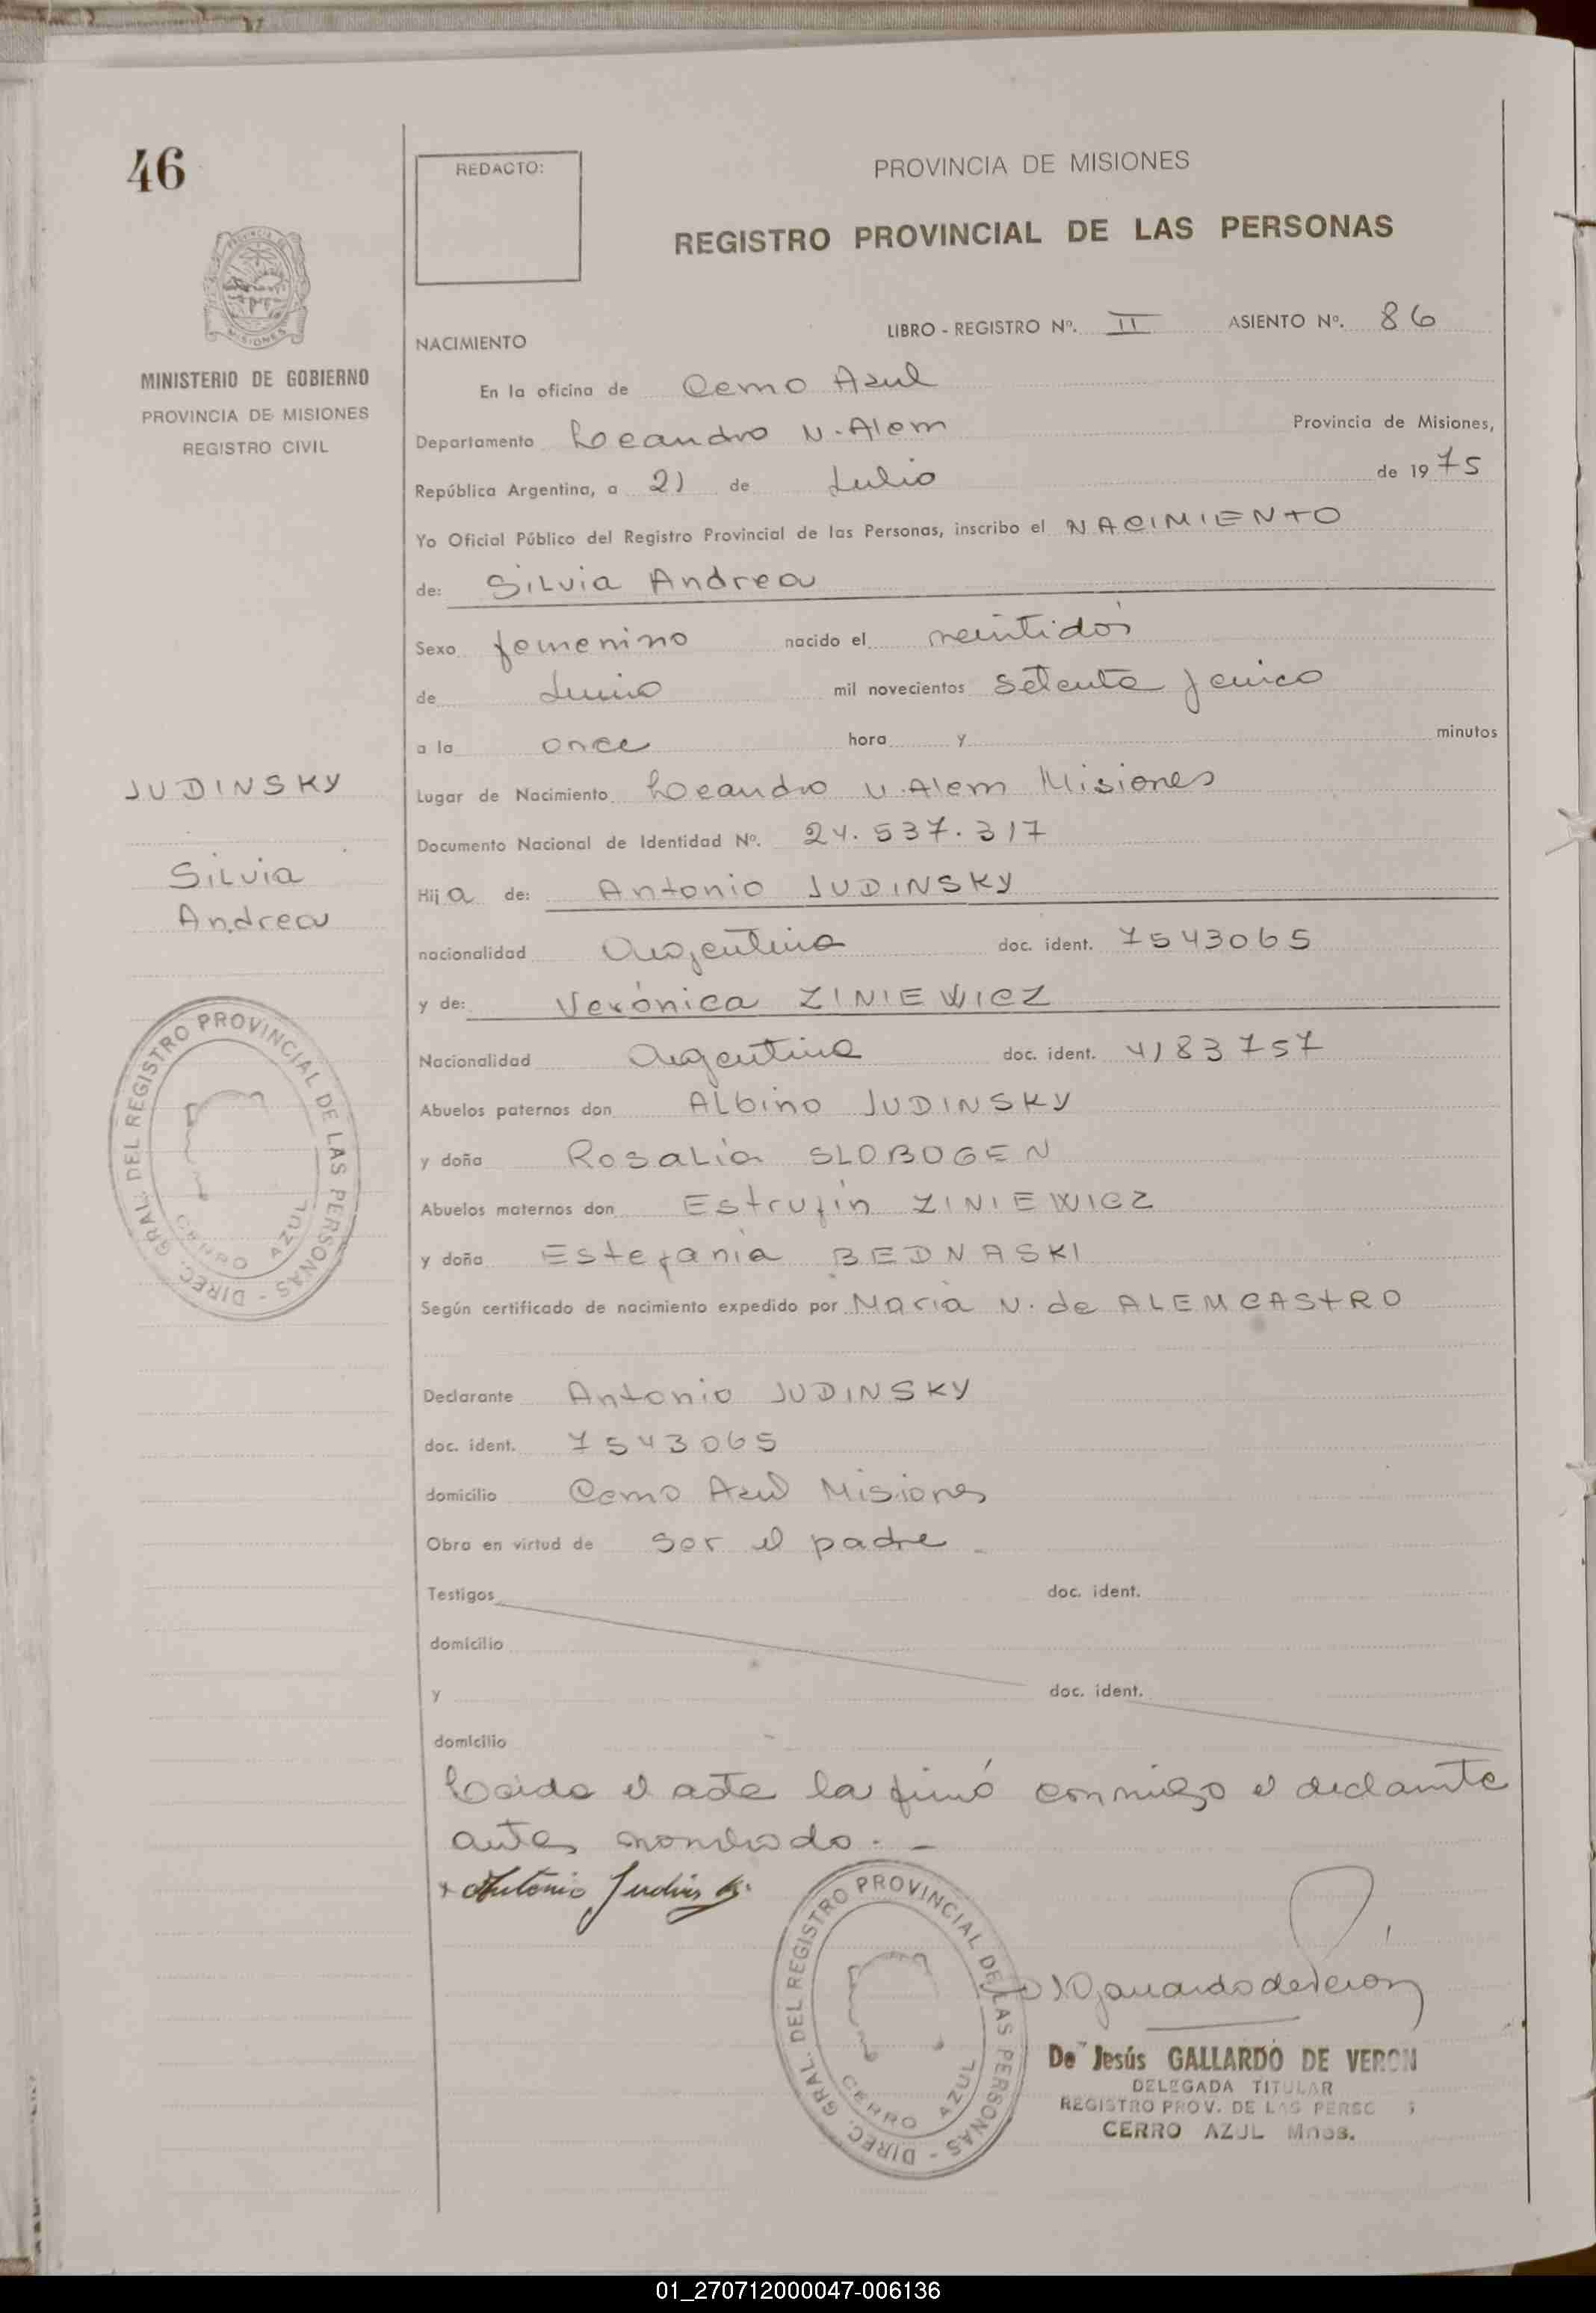 46
REDACTO:
PROVINCIA DE MISIONES
REGISTRO PROVINCIAL DE LAS PERSONAS
MINISTERIO DE GOBIERNO
PROVINCIA DE MISIONES
REGISTRO CIVIL
LIBRO - REGISTRO Nº. II ASIENTO Nº. 86
NACIMIENTO
En la oficina de Cerro Azul
Departamento Leandro N. Alem Provincia de Misiones,
República Argentina, a 21 de Julio de 1975
Yo Oficial Público del Registro Provincial de las Personas, inscribo el NACIMIENTO
de: Silvia Andrea
Sexo femenino nacido el veintidós
de Junio mil novecientos setenta y cinco
a la once hora y minutos
Lugar de Nacimiento Leandro N. Alem Misiones
Documento Nacional de Identidad Nº. 24.537.317
Hija de: Antonio JUDINSKY
nacionalidad Argentina doc. ident. 7543065
y de: Verónica ZINIEWICZ
Nacionalidad Argentina doc. ident. 4183757
Abuelos paternos don Albino JUDINSKY
y doña Rosalia SLOBOGEN
Abuelos maternos don Estrufin ZINIEWICZ
y doña Estefania BEDNASKI
Según certificado de nacimiento expedido por Maria N. de ALEMCASTRO
Declarante Antonio JUDINSKY
doc. ident. 7543065
domicilio Cerro Azul Misiones
Obra en virtud de ser el padre
Testigos doc. ident.
domicilio
y doc. ident.
domicilio
Leida el acta la firmó conmigo el declarante
antes nombrado. -
Antonio Judinsky
JUDINSKY
Silvia
Andrea
DIREC. GRAL. DEL REGISTRO PROVINCIAL DE LAS PERSONAS -
CERRO AZUL
DIREC. GRAL. DEL REGISTRO PROVINCIAL DE LAS PERSONAS -
CERRO AZUL
De Jesús GALLARDO DE VERON
DELEGADA TITULAR
REGISTRO PROV. DE LAS PERSO S
CERRO AZUL Mnes.
01_270712000047-006136